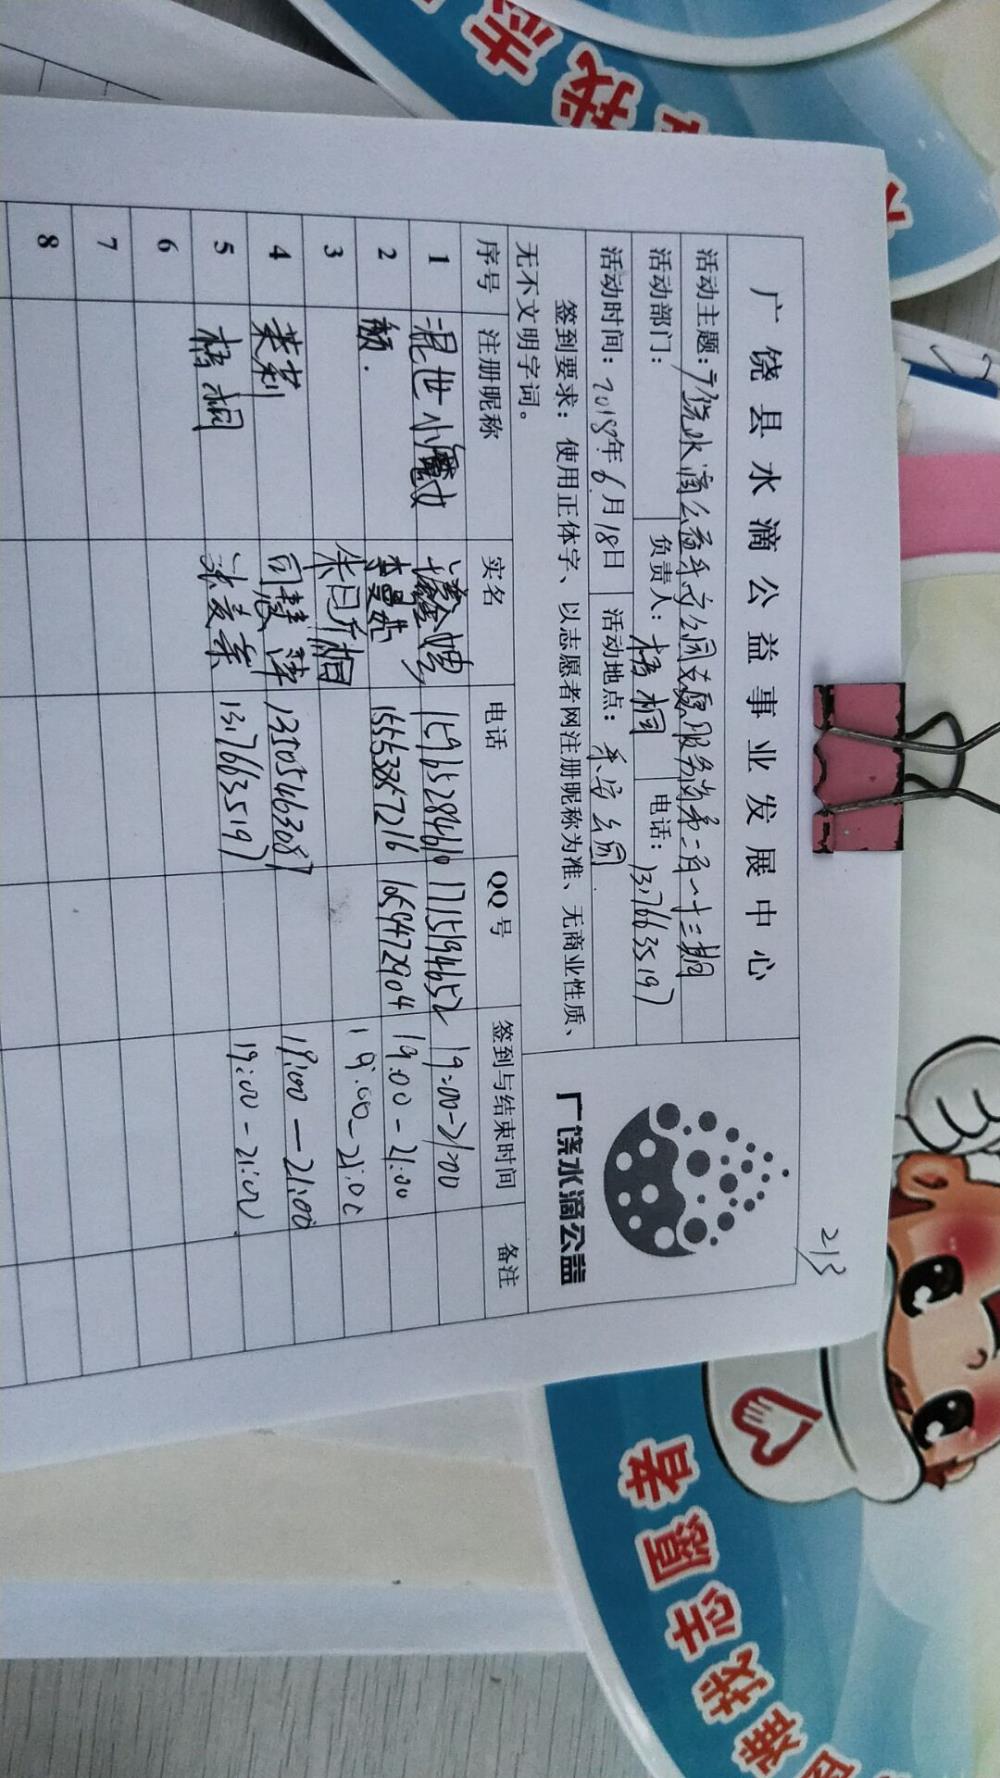 213
广饶县水滴公益事业发展中心
活动主题：广饶水滴公益平安公园志愿服务岗第二百一十三期
活动部门： 负责人：梧桐 电话：13176635197
活动时间：2018年6月18日 活动地点：乐安公园
签到要求：使用正体字、以志愿者网注册昵称为准、无商业性质、
无不文明字词。
广饶水滴公益
序号 注册昵称 实名 电话 QQ号 签到与结束时间 备注
1 混世小魔女 15965284610 1715194652 19:00-21:00
2 颜. 15553857216 1654472904 19:00-21:00
3 19:00-21:00
4 茉莉 13505463087 19:00—21:00
5 梧桐 13176635197 19:00-21:00
6
7
8
志
找
者
愿
志
找
难